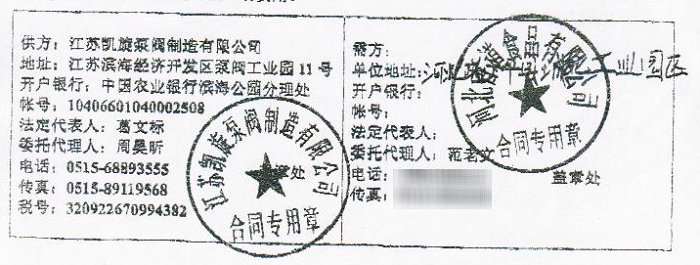 供方：江苏凯旋泵阀制造有限公司
地址：江苏滨海经济开发区泵阀工业园11号
开户银行：中国农业银行滨海公园分理处
帐号：10406601040002508
法定代表人：葛文标
委托代理人：周昊昕
电话：0515-68893555
传真：0515-89119568
税号：320922670994382
章处
江苏凯旋泵阀制造有限公司
合同专用章
需方：
单位地址：河北 工业园区
开户银行：
帐号：
法定代表人：
委托代理人：范老文
电话：
传真：
盖章处
河北 食品有限公司
合同专用章